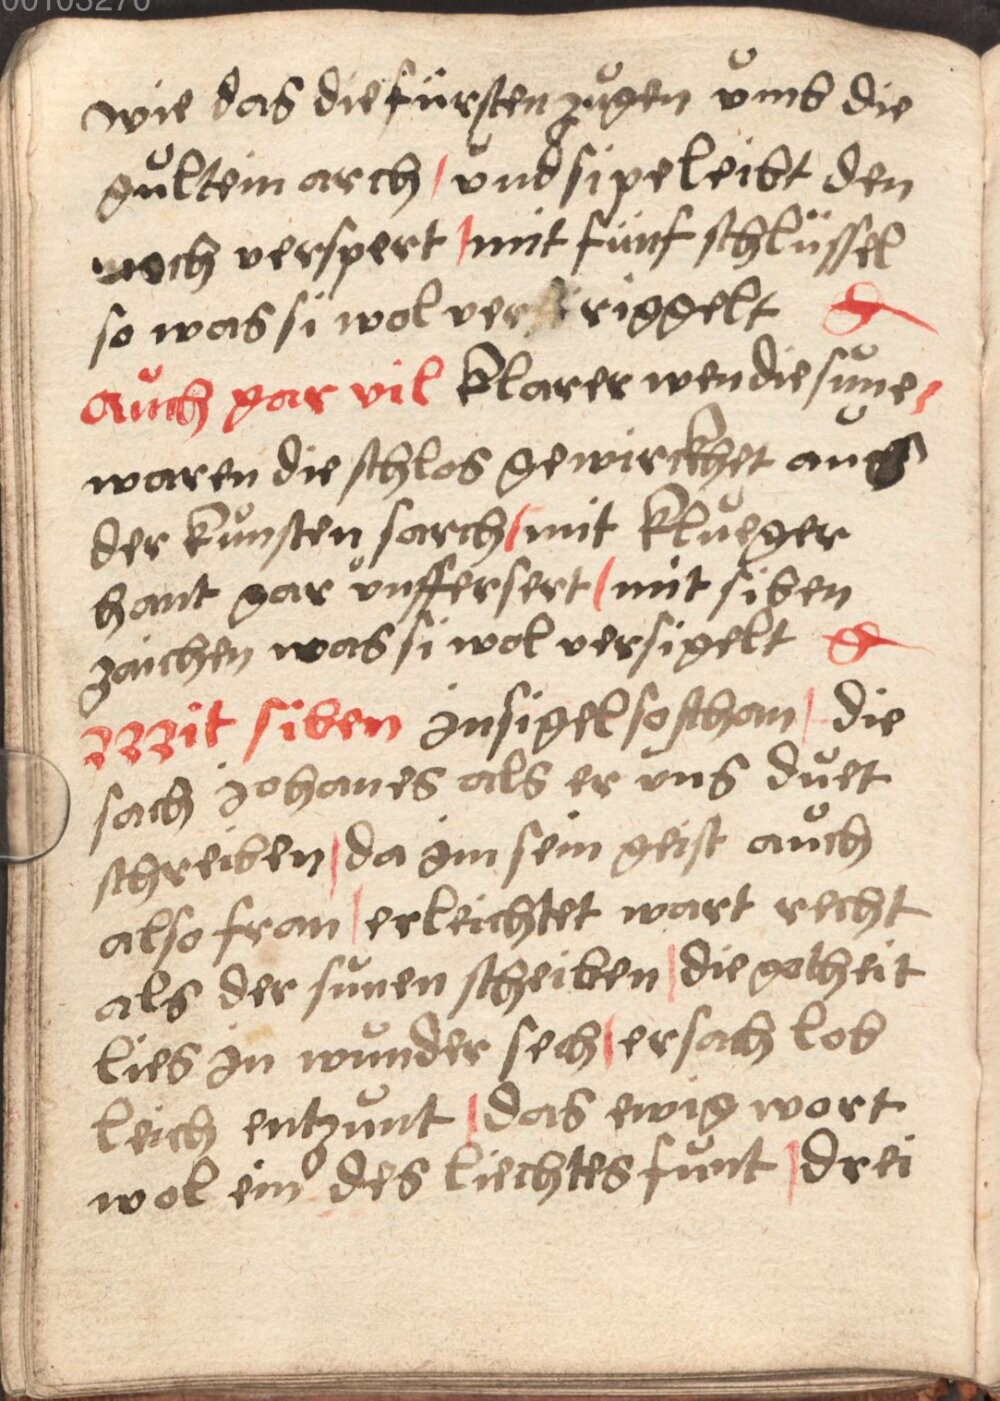 00103270
wie das die fürsten zugen vmb die
gultein arch / vnd si peleibt den
noch verspert / mit fünf schlüssel
so was si wol ver riggelt
auch gar vil klarer wen die sune /
waren die schlos gewirckhet aus
der kunsten sarch / mit klueger
hant gar vnffersert / mit siben
zaichen was si wol versigelt
Mit siben jnsigel so schan / die
sach johanes als er vns duet
schreiben / da jm sein geist auch
also fran / erleichtet wart recht
als der sunen scheiben / die gotheit
lies jn wunder sech / er sach lob
leich entzunt / das ewig wort
wol ein des liechtes funt / drei